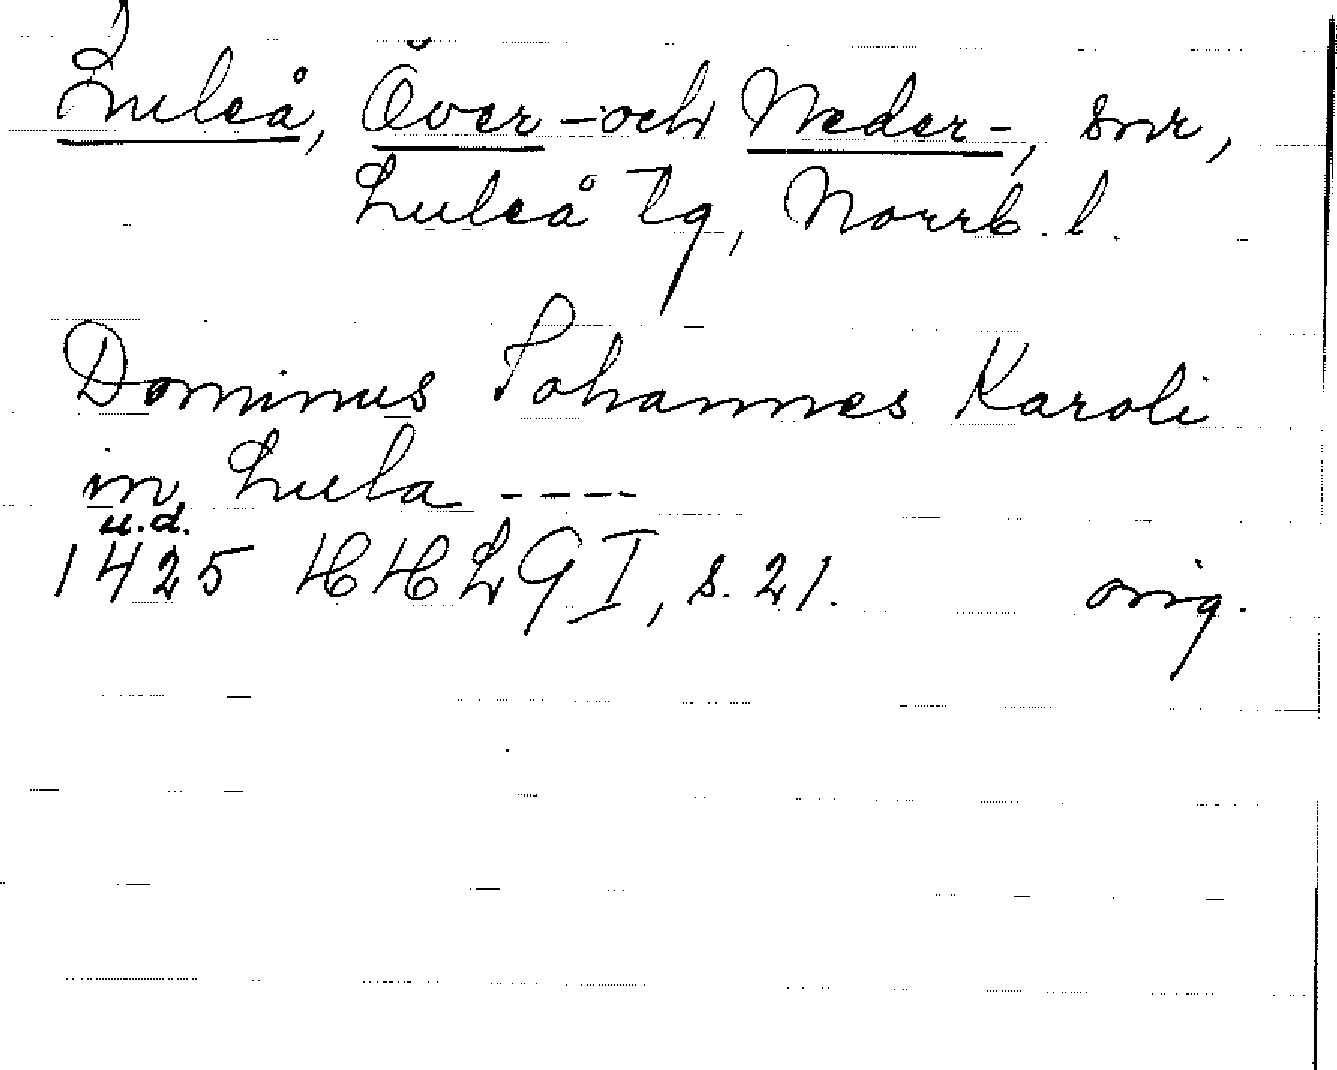 Luleå, Över- och Neder-, snr,
Luleå tg, Norrb. l.
Dominus Johannes Karoli
in Lula ----
u.d.
1425 HHLG I, s. 21. orig.